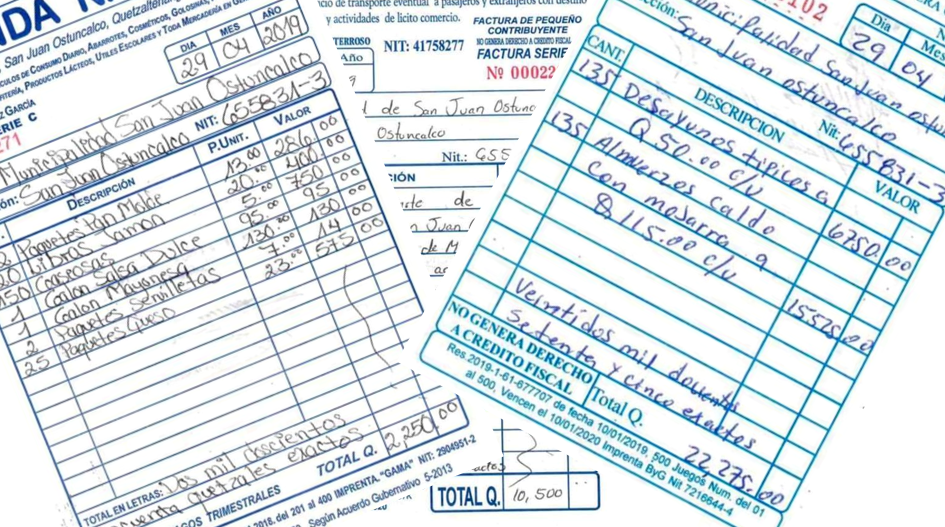 San Juan Ostuncalco, Quetzaltenango
DIA MES AÑO
29 04 2019
Municipalidad San Juan Ostuncalco
San Juan Ostuncalco NIT: 655831-3
DESCRIPCIÓN P.UNIT. VALOR
Paquetes Pan Molde 13.00 286.00
20 Libras Jamon 20.00 400.00
150 Gaseosas 5.00 750.00
1 Galon Salsa Dulce 95.00 95.00
1 Galon Mayonesa 130.00 130.00
2 Paquetes Servilletas 7.00 14.00
25 Paquetes Queso 23.00 575.00
TOTAL EN LETRAS: Dos mil doscientos
quetzales exactos.
TOTAL Q. 2,250.00
2018, del 201 al 400 IMPRENTA, "GAMA" NIT: 2904951-2
Según Acuerdo Gubernativo 5-2013
cio de transporte eventual a pasajeros y extranjeros con destino
y actividades de licito comercio.
FACTURA DE PEQUEÑO
CONTRIBUYENTE
NO GENERA DERECHO A CREDITO FISCAL
NIT: 41758277 FACTURA SERIE
Año
Nº 00022
de San Juan Ostunc
Ostuncalco
Nit.: 655
de
n Juan
de M
ar
actos
TOTAL Q. 10,500
102
Dia Mes
29 04
Municipalidad San Juan ostun
San Juan ostuncalco
Nit: 655831-3
CANT. DESCRIPCION VALOR
135 Desayunos tipicos a
Q 50.00 c/u 6750.00
135 Almuerzos caldo
con mojarra a
Q 115.00 c/u 15525.00
Veintidos mil doscientos
Setenta y cinco exactos
NO GENERA DERECHO
A CREDITO FISCAL
Total Q. 22,275.00
Res. 2019-1-61-677707 de fecha 10/01/2019, 500 Juegos Num. del 01
al 500, Vencen el 10/01/2020 Imprenta ByG Nit 7216644-4